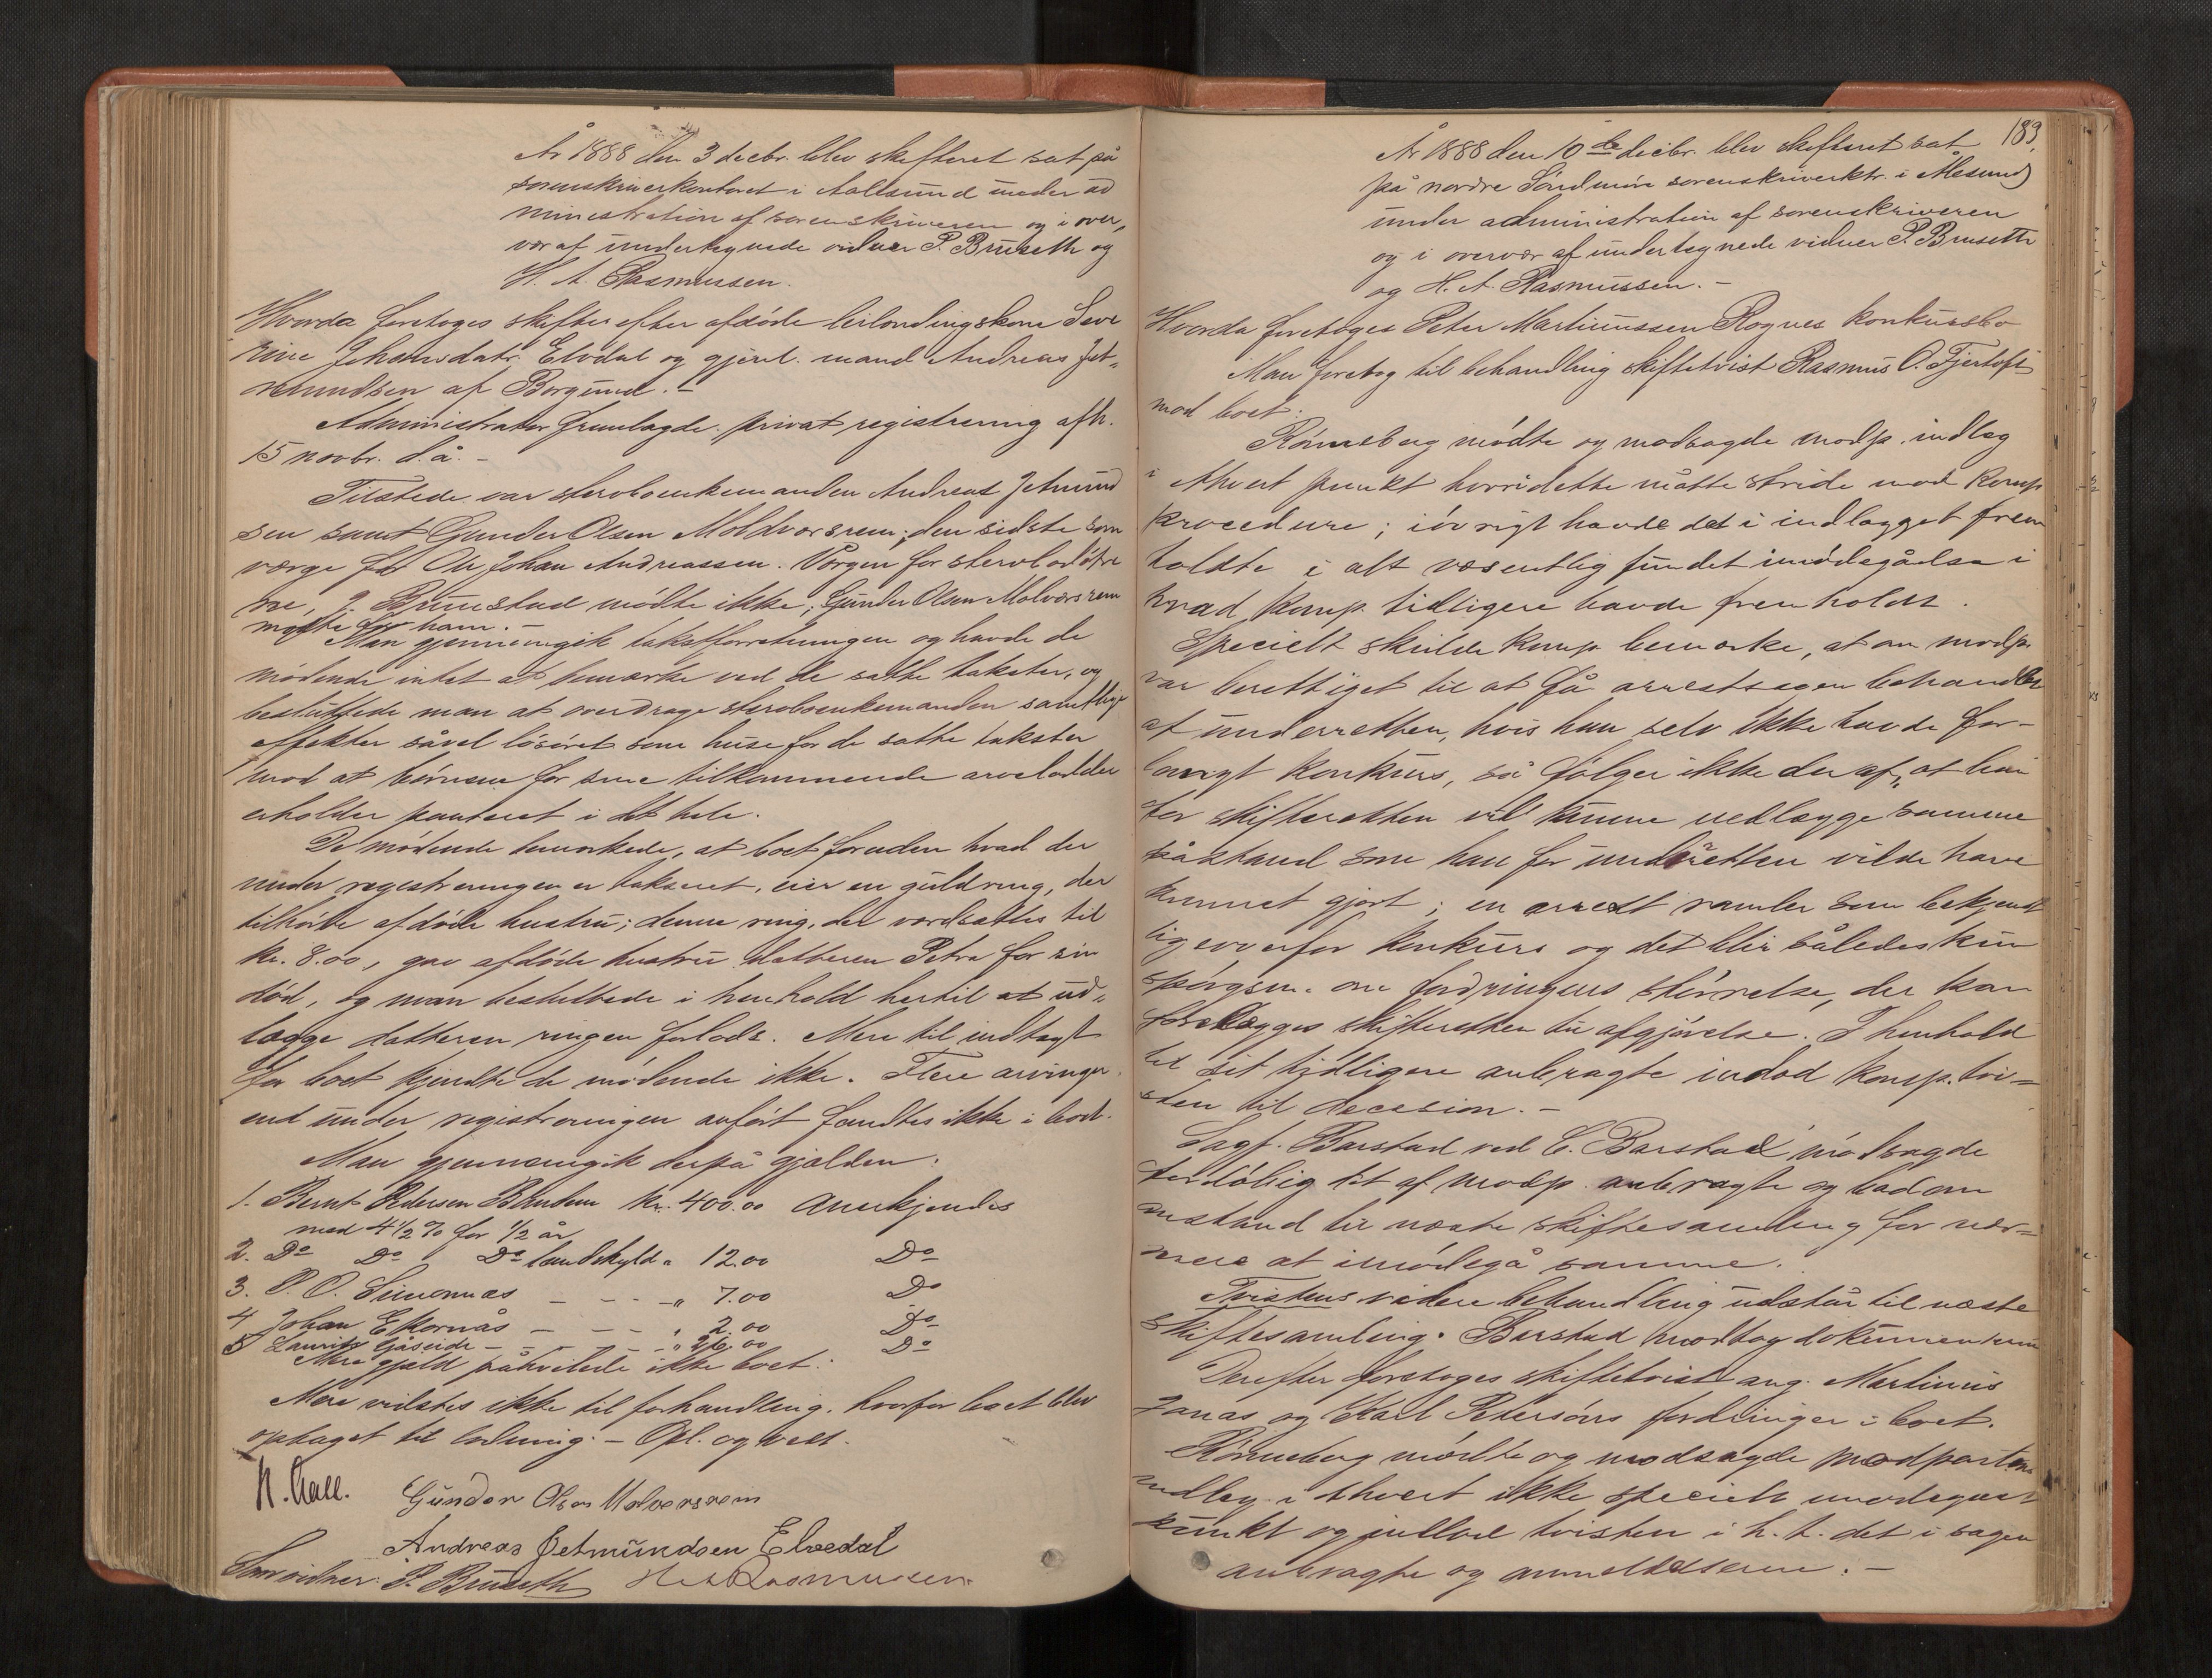 År 1888 den 3 decbr. blev skifteret sat på
sorenskriverkontoret i Aalesund under ad
ministration af sorenskriveren og i over,
vær af undertegnede vidner P. Bruseth og
H. A. Rasmussen.
Hvorda foretoges skifte efter afdøde leilændingskone Seve
rine Johansdatr. Elvedal og gjenl. mand Andreas Jet-
mundsen af Borgund. -
Administrator fremlagde privat registrering afh.
15 novbr. d.å. -
Tilstede var sterboenkemanden Andreas Jetmund
sen samt Gunder Olsen Moldværsrem; den sidste som
værge for Ole Johan Andreassen. Værgen for sterbodøtre
ne, J. Brunstad mødte ikke; Gunder Olsen Molværsrem
mødte for ham. -
Man gjennemgik takstforretningen og havde de
mødende intet at bemærke ved de satte takster, og
besluttede man at overdrage sterboenkemanden samtlige
effekter såvel løsøret som huse for de satte takster
mod at børnene for sine tilkommende arvelodder
erholder panteret i det hele.
De mødende bemærkede, at boet foruden hvad der
under registreringen er takseret, eier en guldring, der
tilhørte afdøde hustru; denne ring, der værdsattes til
kr. 8.00, gav afdøde hustru datteren Petra før sin
død, og man besluttede i henhold hertil at ud-
lægge datteren ringen forlods. Mere til indtægt
for boet kjendte de mødende ikke. Flere arvinger
end under registreringen anført fandtes ikke i boet.
Man gjennemgik derpå gjælden.
1. Bernt Pedersen kr. 400.00 anerkjendes
med 4 1/2 % for 1/2 år
2. Do Do Do landskyld " 12.00 Do
3. P. O. Simonnæs - - - " 7.00 Do
4 Johan Ekornås - - - " 2.00 Do
5 Laurits Gåseide - - - - " 26.00 Do
Mere gjæld påhvilede ikke boet.
Mere vidstes ikke til forhandling, hvorfor boet blev
optaget til lodning. - Opl. og vedt.
N. Aall. Gunder Olsen Molversrem
Andreas Jetmundsen Elvedal
Som vidner: P. Bruseth H A Rasmussen.
183.
År 1888 den 10de decbr. blev skifteret sat
på nordre Søndmøre sorenskriverktr. i Ålesund
under administration af sorenskriveren
og i overvær af undertegnede vidner P. Bruseth
og H. A. Rasmussen. -
Hvorda foretoges Peter Martinussen Rognes konkursbo
Man foretog til behandling skiftetvist Rasmus O. Fjertoft
mod boet:
Rønneberg mødte og modsagde modp. indlæg
i ethvert punkt hvori dette måtte stride mod komp
procedure; iøvrigt havde det i indlægget frem
holdte i alt væsentlig fundet imødegåelse i
hvad komp. tidligere havde fremholdt.
Specielt skulde komp. bemærke, at om modp.
var berettiget til at få arrestsagen behandlet
af underretten, hvis han selv ikke havde for-
langt konkurs, så følger ikke deraf, at han
for skifteretten vil kunne nedlægge samme
påstand som han for underretten vilde have
kunnet gjort; en arrest ramler som bekjendt
lig overfor konkurs og det blir således kun
spørgsm. om fordringens størrelse, der kan
forelægges skifteretten til afgjørelse. I henhold
til sit tidligere anbragte indlod komp. tvi-
sten til decision. -
Sagf. Barstad ved C. Barstad modsagde
foreløbig det af modp. anbragte og bad om
anstand til næste skiftesamling for nær-
mere at imødegå samme.
Tvistens videre behandling udstår til næste
skiftesamling. Barstad modtog dokumenterne
Derefter foretoges skiftetvist ang. Martinus
Jonas og Karl Petersøns fordringer i boet.
Rønneberg mødte og modsagde modpartens
indlæg i ethvert ikke specielt imødegået
punkt og indlod tvisten i h. t. det i sagen
anbragte og anmeldelserne. -